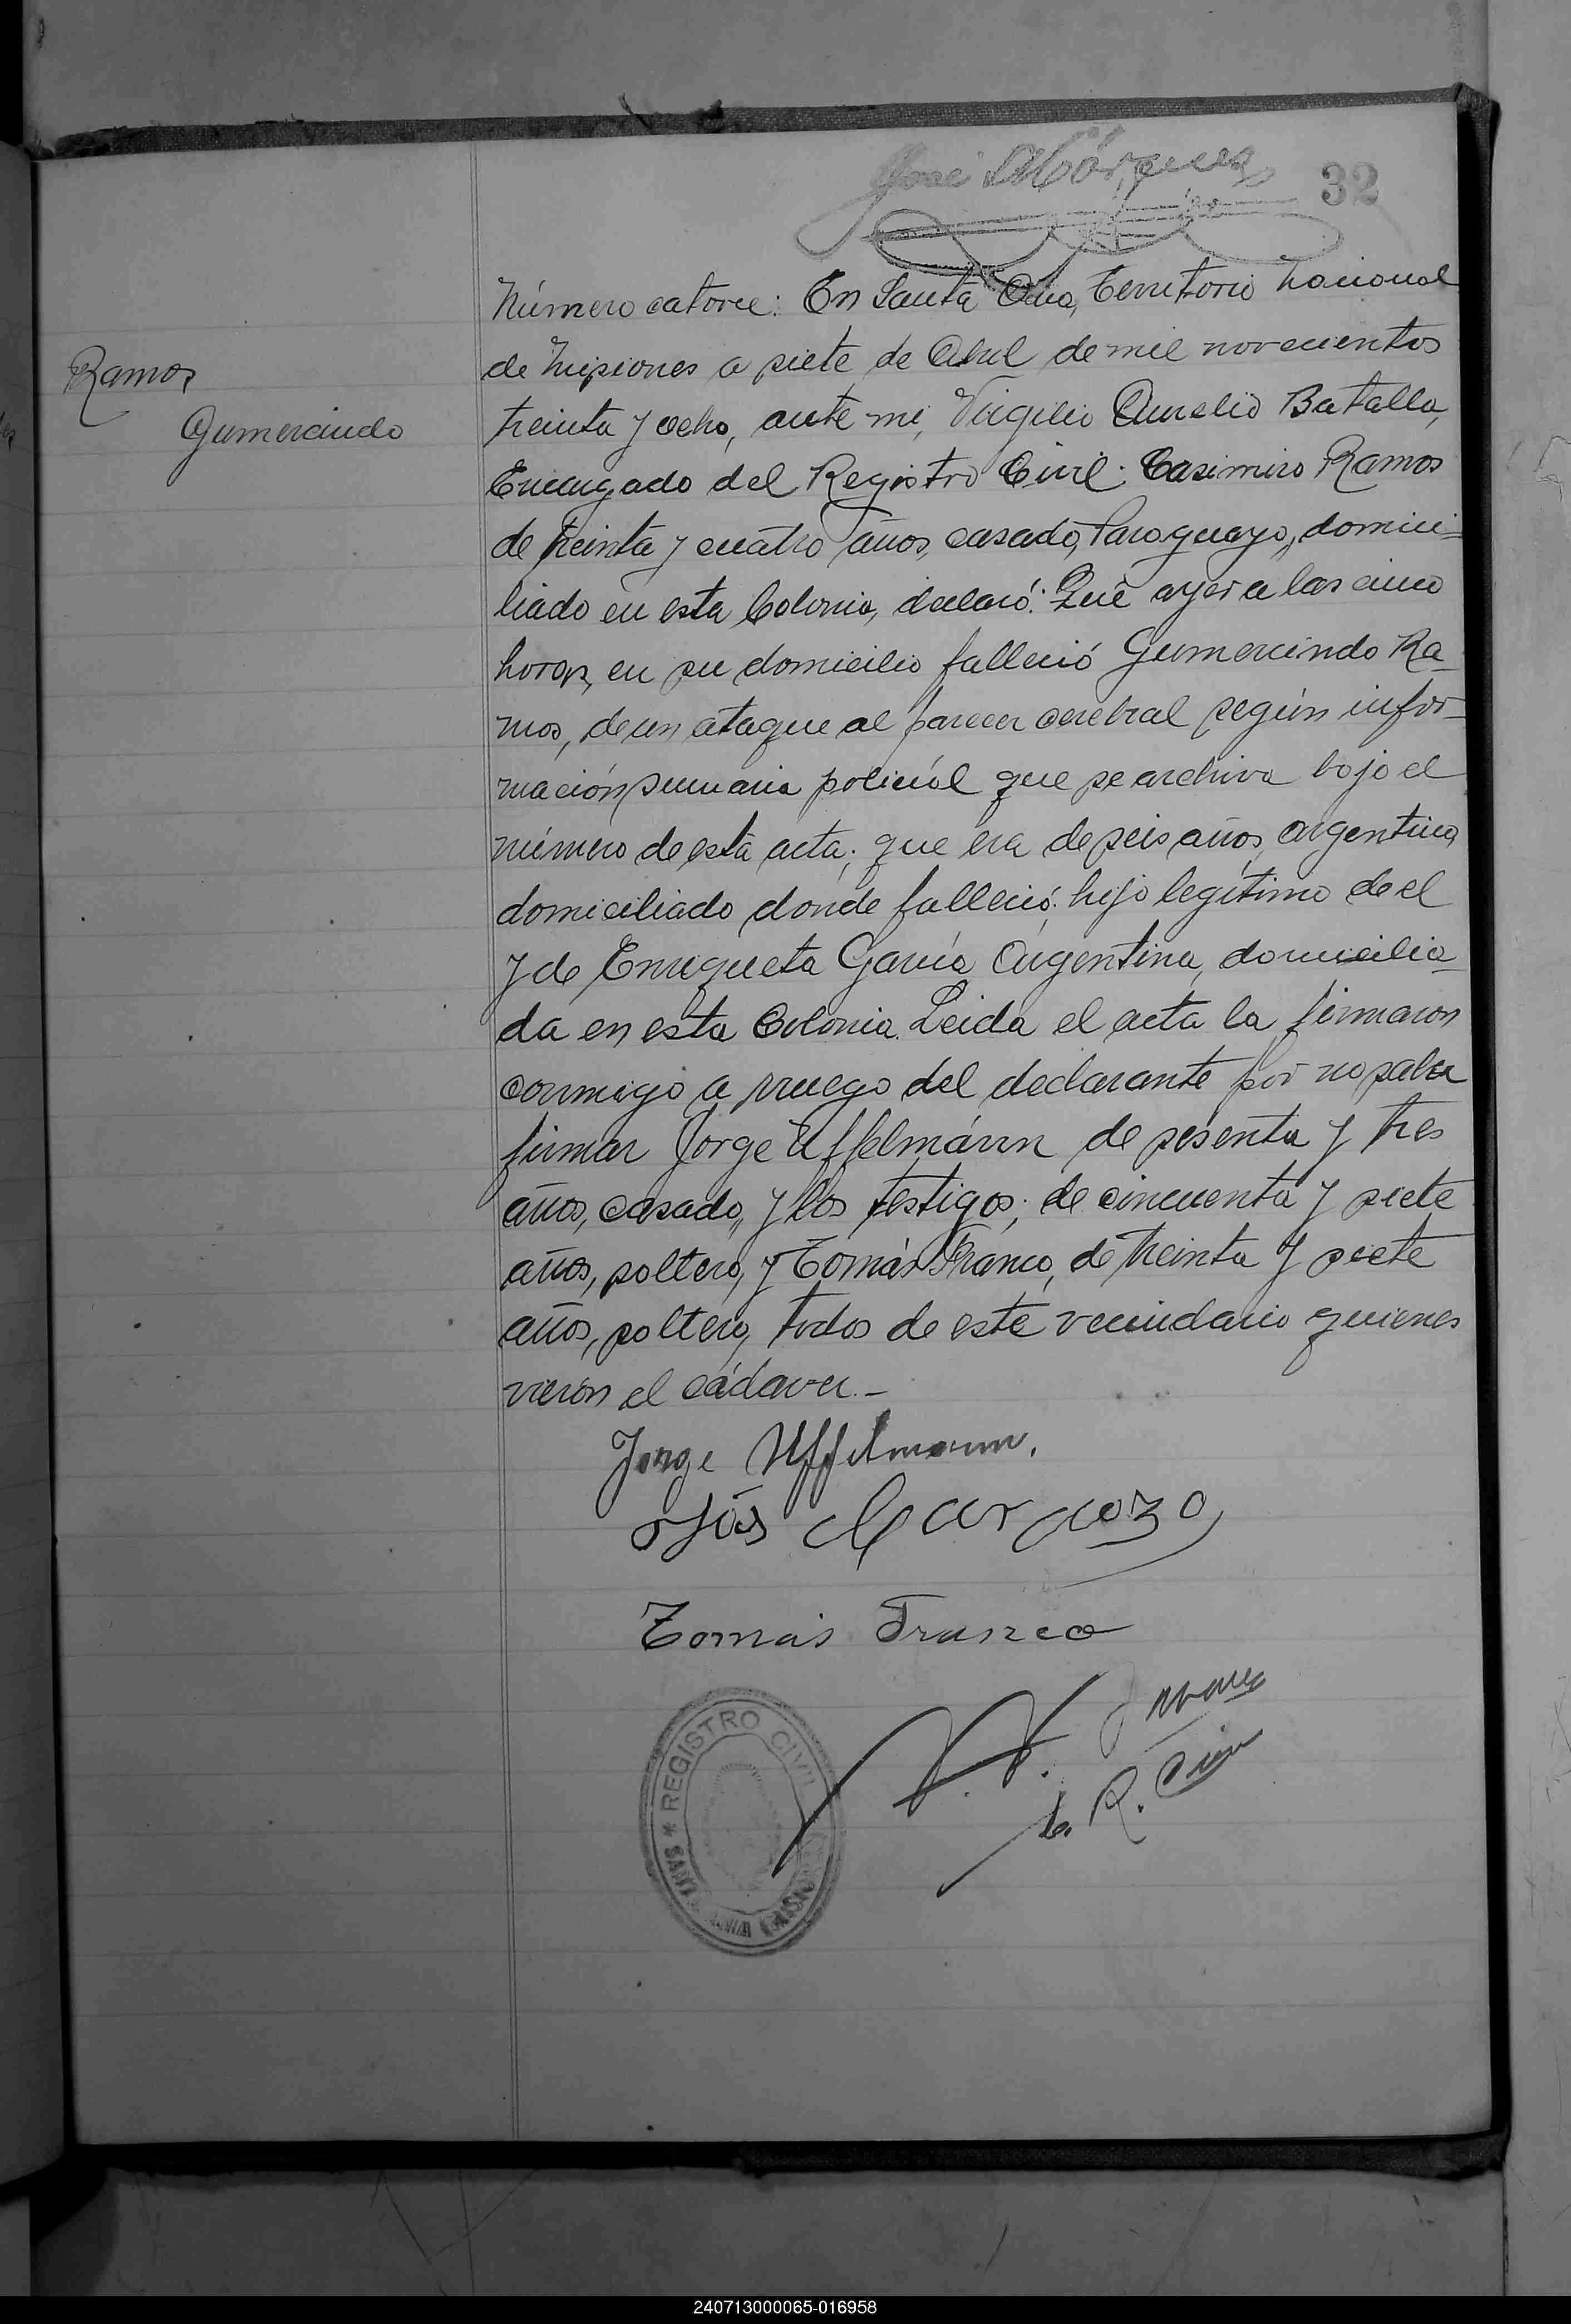 José Márquez
32
Ramos
Gumercindo
Número catorce: En Santa Ana, Territorio Nacional
de Misiones a siete de Abril de mil novecientos
treinta y ocho, ante mi, Virgilio Aurelio Batalla,
Encargado del Registro Civil: Casimiro Ramos
de treinta y cuatro años, casado, Paraguayo, domici=
liado en esta Colonia, declaró: Que ayer a las cinco
horas, en su domicilio falleció Gumercindo Ra-
mos, de un ataque al parecer cerebral según infor-
mación sumaria policial que se archiva bajo el
número de esta acta; que era de seis años, argentino,
domiciliado donde falleció; hijo legítimo de el
y de Enriqueta García, Argentina, domicilia-
da en esta Colonia. Leida el acta la firmaron
conmigo a rruego del declarante por no saber
firmar Jorge Uffelmánn de sesenta y tres
años, casado, y los testigos; de cincuenta y siete
años, soltero, y Tomás Franco, de treinta y siete
años, soltero, todos de este vecindario quienes
vieron el cádaver.-
Jorge Uffelmann.
Tomás Franco
REGISTRO CIVIL
* SANTA
E. R. Civil
240713000065-016958